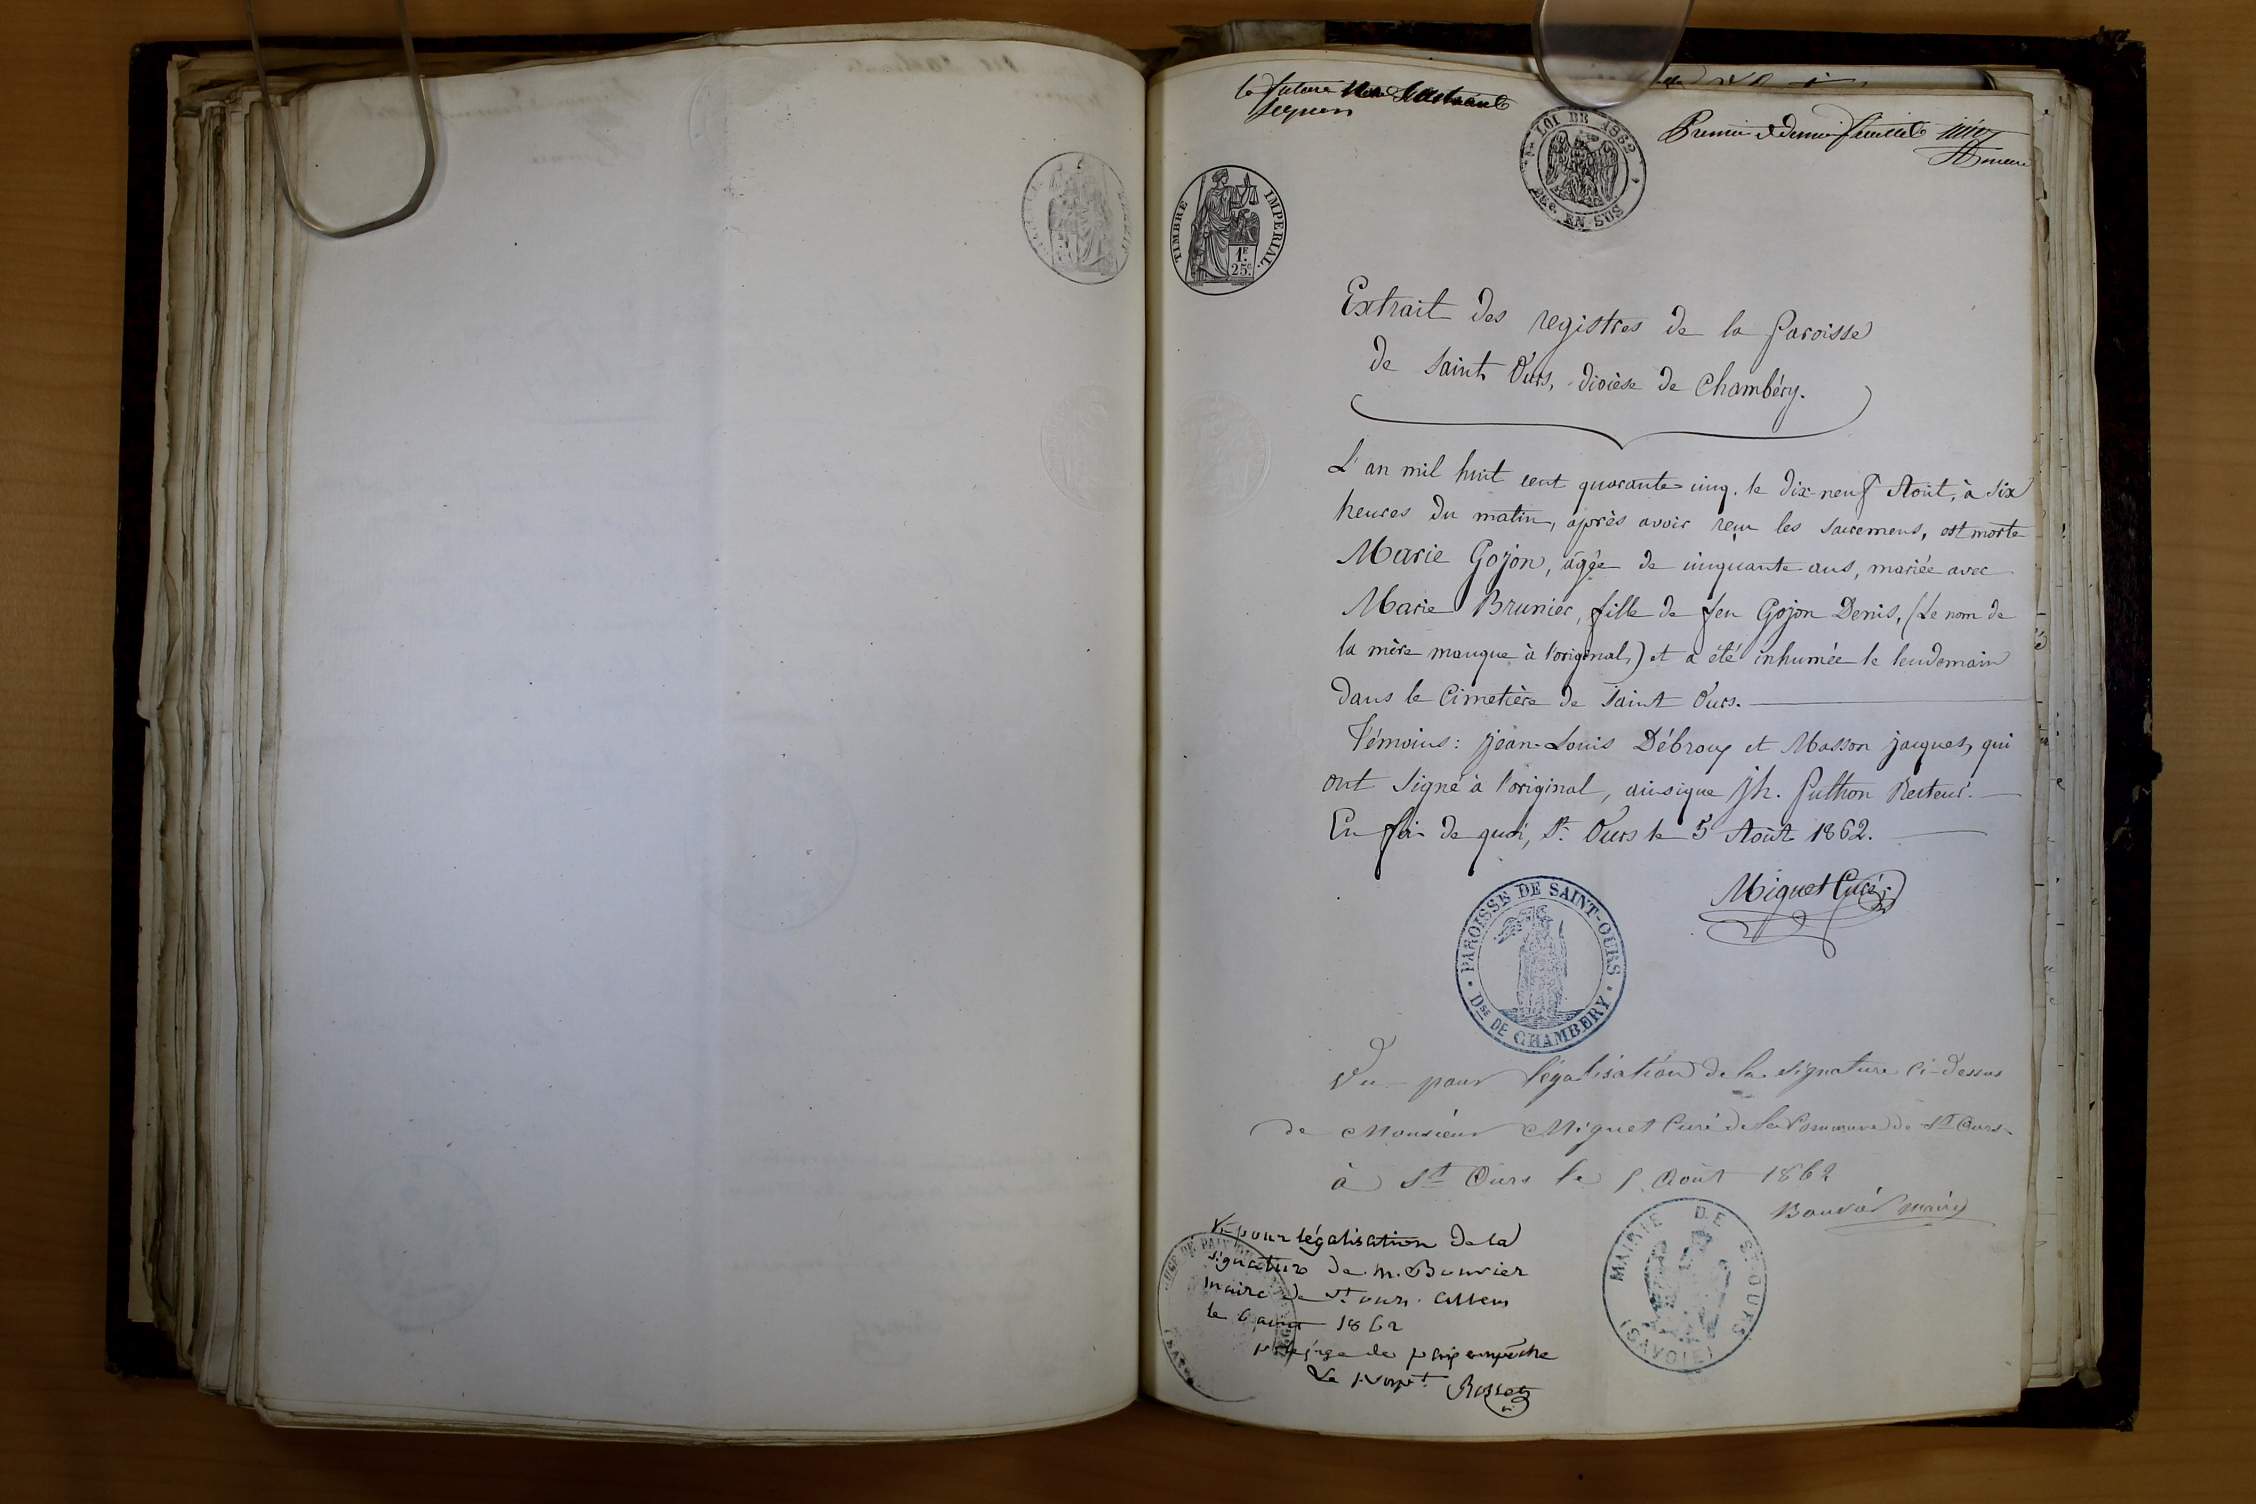 La future
Premier et dernier feuillet
LOI DE 1862
2/10ES. EN SUS
TIMBRE IMPERIAL.
1F.
25C.
Extrait des registres de la Paroisse
de Saint Ours, diocèse de Chambéry.
L'an mil huit cent quarante-cinq. le dix-neuf Août, à six
heures du matin, après avoir reçu les sacremens, est morte
Marie Gojon, âgée de cinquante ans, mariée avec
Marie Brunier, fille de feu Gojon Denis, (Le nom de
la mère manque à l'original,) et a été inhumée le lendemain
dans le Cimetière de Saint Ours.
Témoins: Jean-Louis Débrouy et Masson jacques, qui
ont signé à l'original, ainsique Jh. Puthon Recteur.
En foi de quoi, St. Ours le 5 Août 1862.
Miguet Curé
PAROISSE DE SAINT-OURS
DSE DE CHAMBERY
Vu pour légalisation de la signature Ci-dessus
de Monsieur Miguet Curé de la Commune de St Ours
à St Ours le 5 Août 1862
Bouvier maire
MAIRIE DE ST OURS
(SAVOIE)
Vu pour légalisation de la
signature de M. Bouvier
maire de St. ours. albens
le 6 aout 1862
pr le juge de paix empêché
Le suppt. Rosset